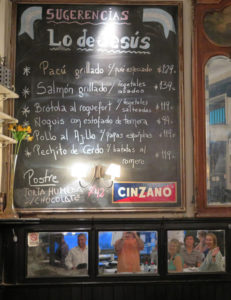 SUGERENCIAS
Lo de Jesús
Pacú grillado c/ puré especiado $129.-
Salmón grillado c/ vegetales asados $139.-
Brótola al roquefort c/ vegetales salteados $119.-
Ñoquis con estofado de ternera $94.-
Pollo al Ajillo c/ papas españolas $119.-
Pechito de Cerdo c/ batatas al romero $119.-
Postre
$42
c/ CHOCOLATE
CINZANO